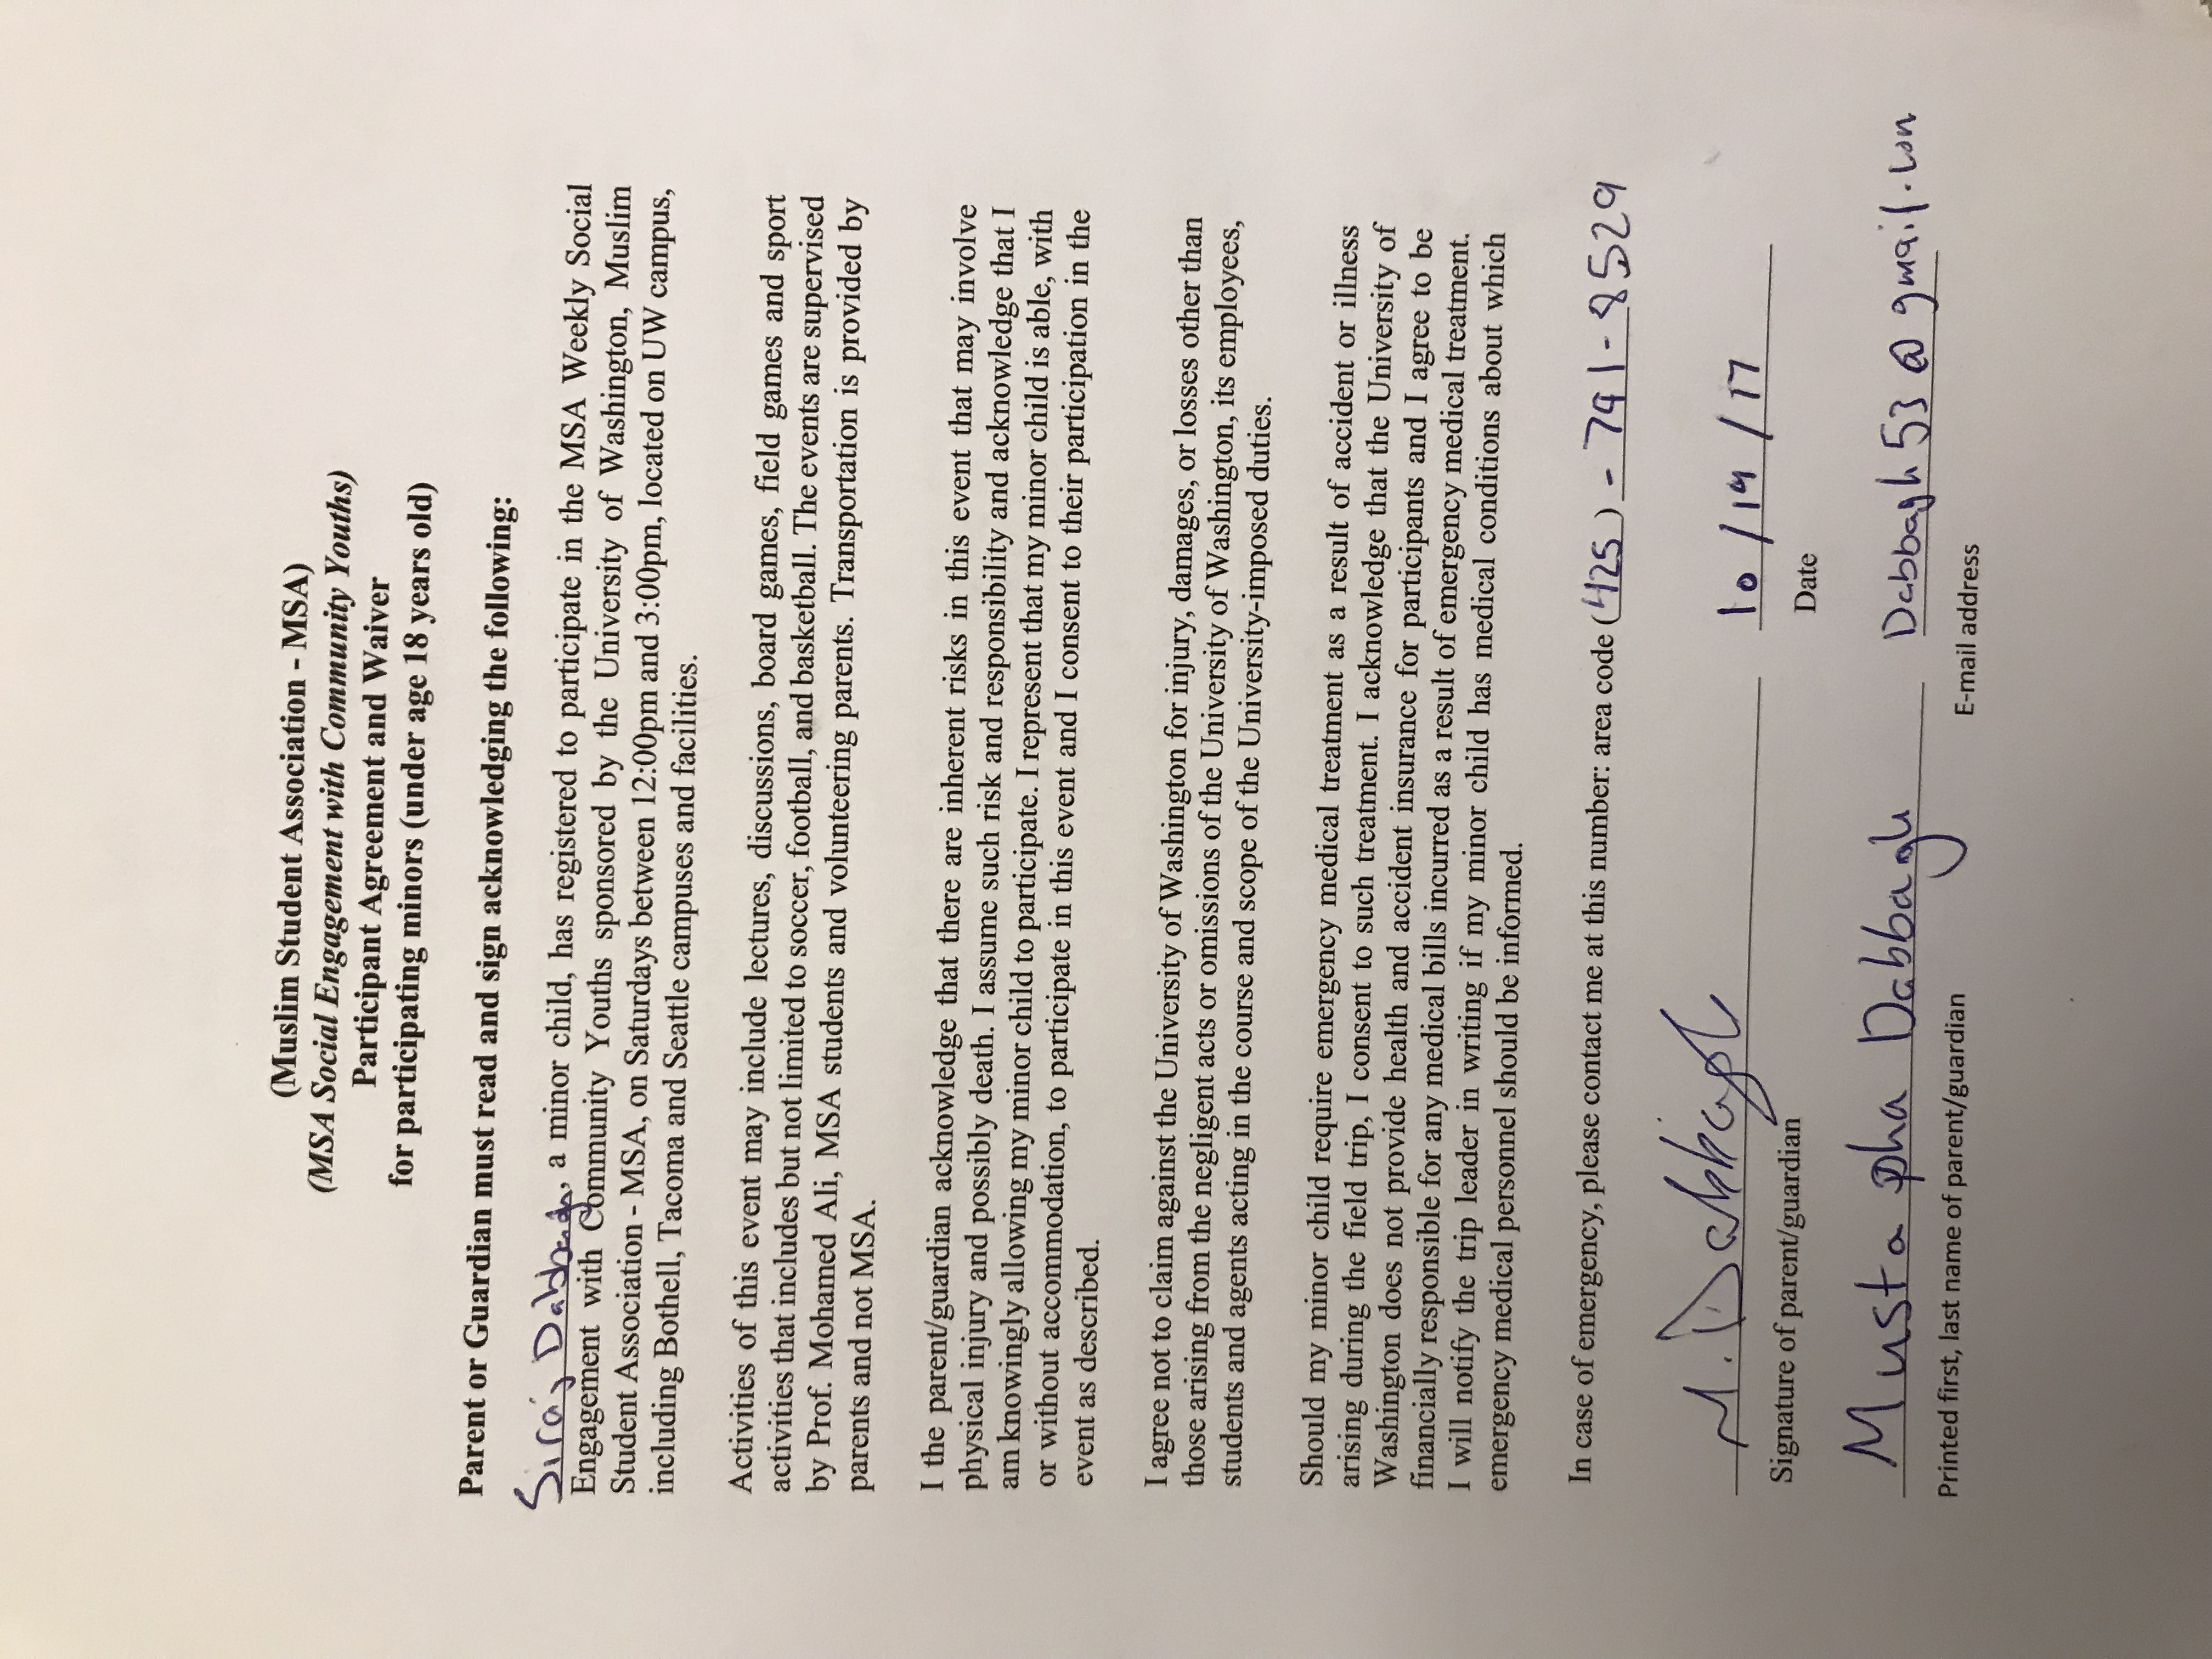 (Muslim Student Association - MSA)
(MSA Social Engagement with Community Youths)
Participant Agreement and Waiver
for participating minors (under age 18 years old)
Parent or Guardian must read and sign acknowledging the following:
Siraj Dabbagh, a minor child, has registered to participate in the MSA Weekly Social
Engagement with Community Youths sponsored by the University of Washington, Muslim
Student Association - MSA, on Saturdays between 12:00pm and 3:00pm, located on UW campus,
including Bothell, Tacoma and Seattle campuses and facilities.
Activities of this event may include lectures, discussions, board games, field games and sport
activities that includes but not limited to soccer, football, and basketball. The events are supervised
by Prof. Mohamed Ali, MSA students and volunteering parents. Transportation is provided by
parents and not MSA.
I the parent/guardian acknowledge that there are inherent risks in this event that may involve
physical injury and possibly death. I assume such risk and responsibility and acknowledge that I
am knowingly allowing my minor child to participate. I represent that my minor child is able, with
or without accommodation, to participate in this event and I consent to their participation in the
event as described.
I agree not to claim against the University of Washington for injury, damages, or losses other than
those arising from the negligent acts or omissions of the University of Washington, its employees,
students and agents acting in the course and scope of the University-imposed duties.
Should my minor child require emergency medical treatment as a result of accident or illness
arising during the field trip, I consent to such treatment. I acknowledge that the University of
Washington does not provide health and accident insurance for participants and I agree to be
financially responsible for any medical bills incurred as a result of emergency medical treatment.
I will notify the trip leader in writing if my minor child has medical conditions about which
emergency medical personnel should be informed.
In case of emergency, please contact me at this number: area code (425) - 791-8529
M. Dabbagh 10/19/17
Signature of parent/guardian Date
Mustapha Dabbagh Dabbagh53@gmail.com
Printed first, last name of parent/guardian E-mail address